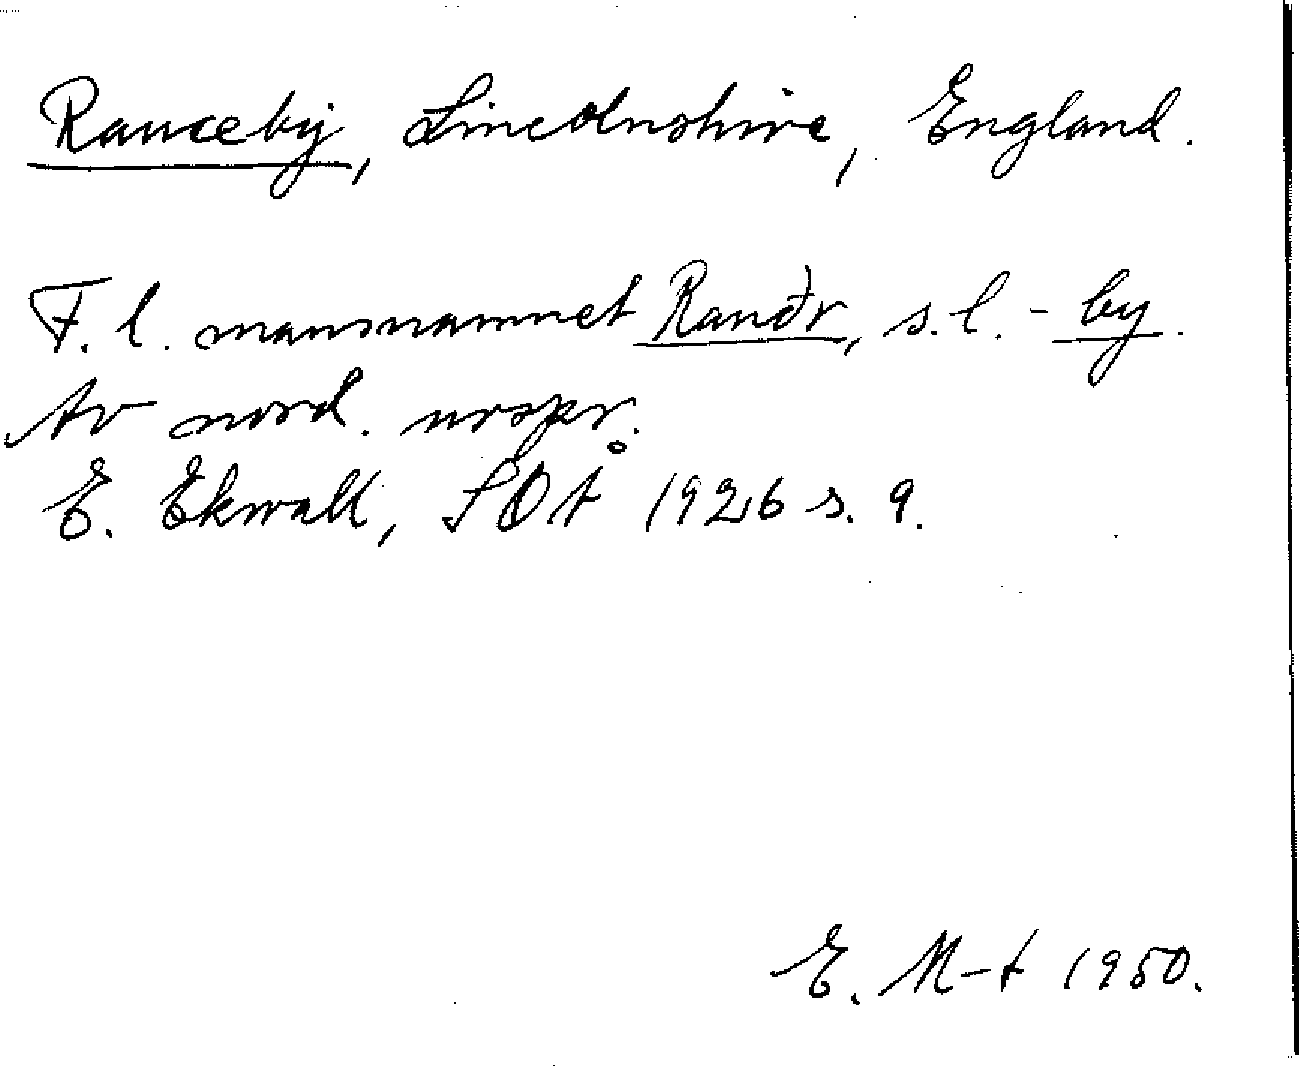 Rauceby, Lincolnshire, England.
F. l. mansnamnet Rauðr, s. l. - by.
Av nord. urspr.
E. Ekwall, SOÅ 1926 s. 9.
E. M-t 1950.